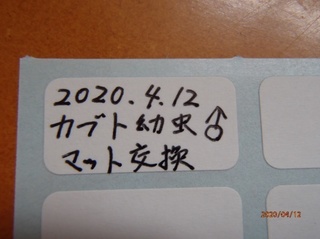 2020.4.12
カブト幼虫♂
マット交換
2020/04/12